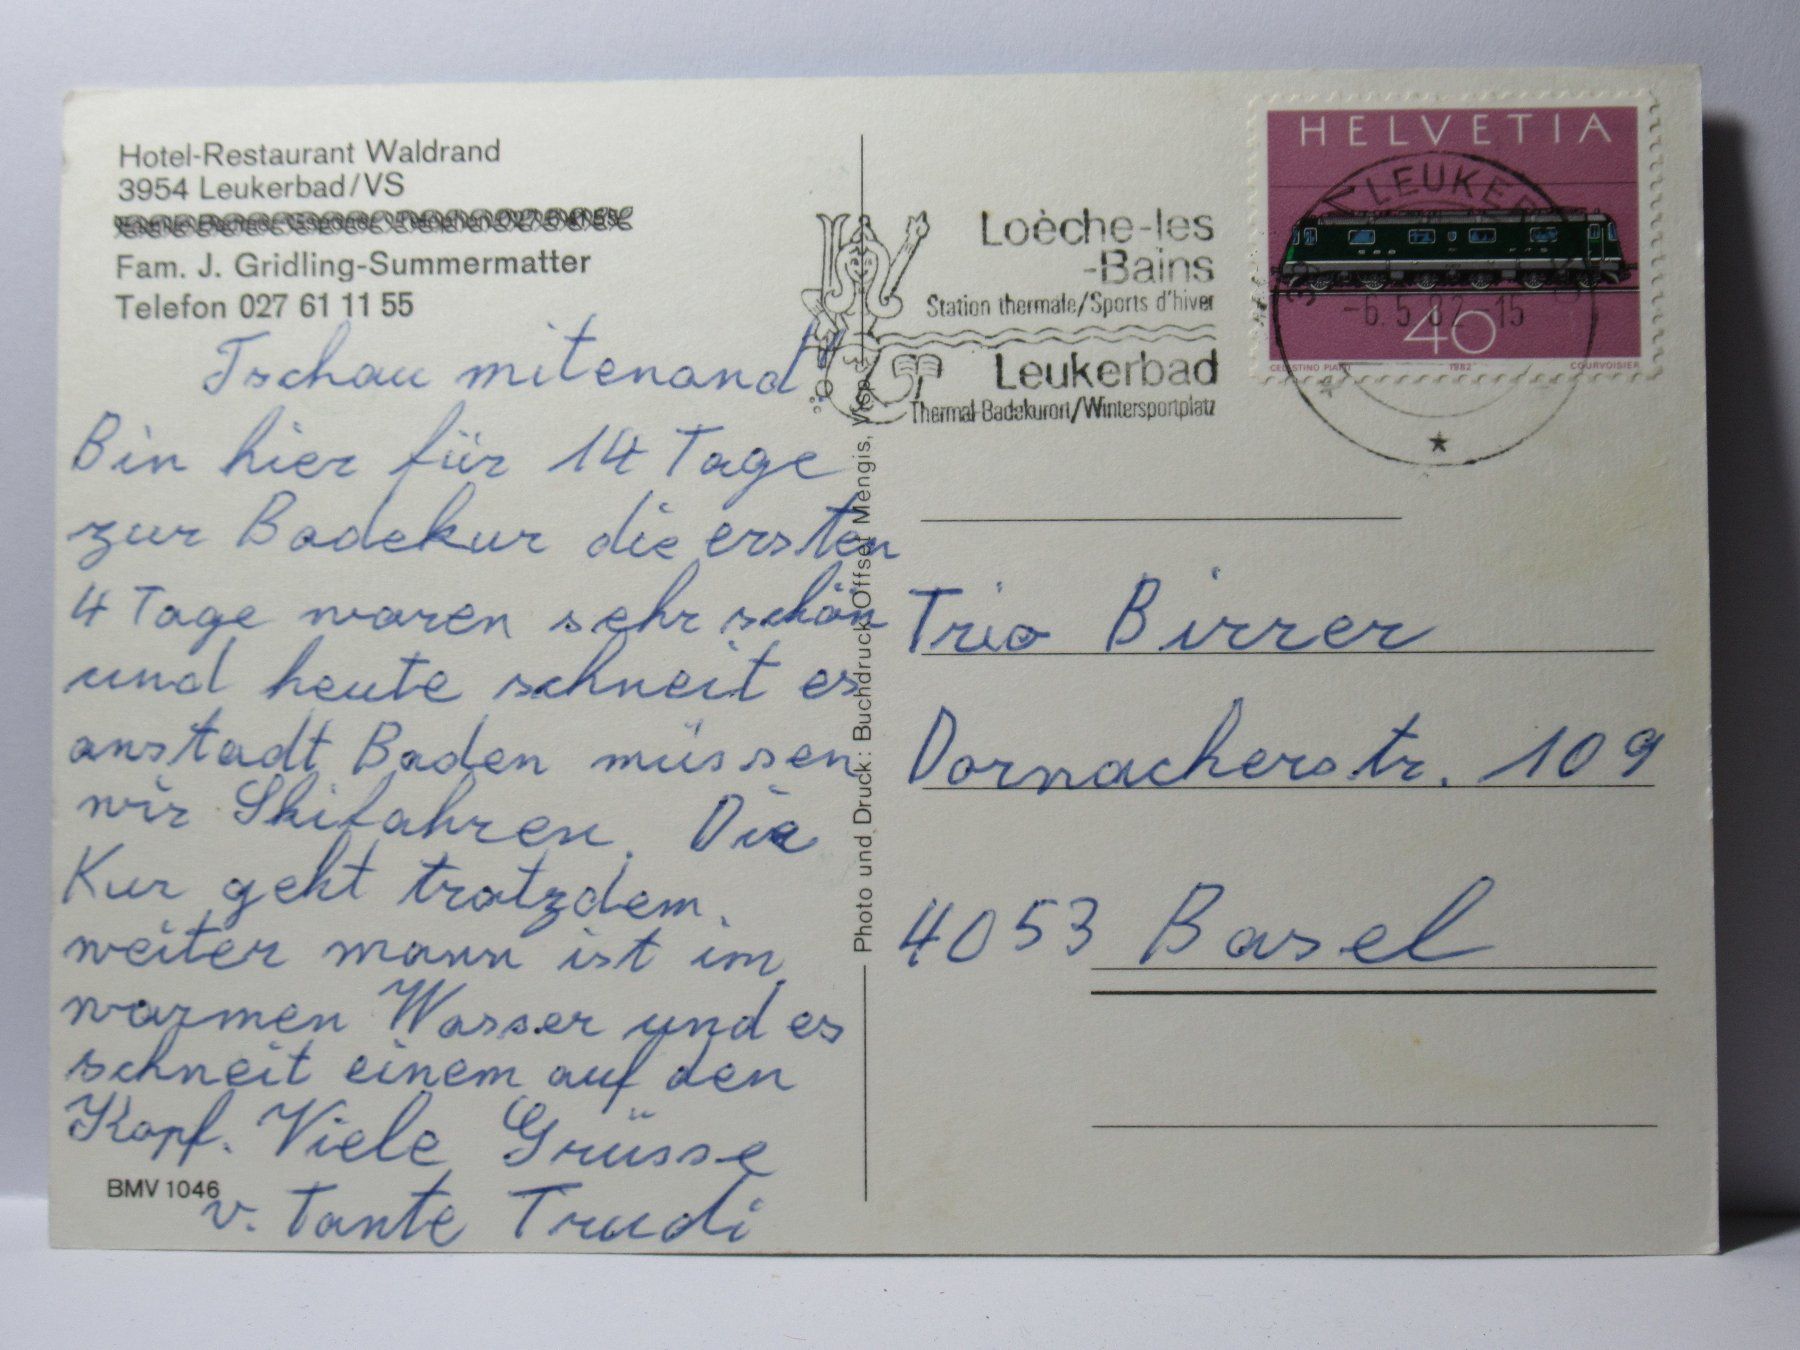 Hotel-Restaurant Waldrand
3954 Leukerbad/VS
Fam. J. Gridling-Summermatter
Telefon 027 61 11 55
Tschau mitenand
Bin hier für 14 Tage
zur Badekur die ersten
4 Tage waren sehr schön
und heute schneit es
anstadt Baden müssen
wir Skifahren. Die
Kur geht trotzdem
weiter mann ist im
warmen Wasser und es
schneit einem auf den
Kopf. Viele Grüsse
v. Tante Trudi
BMV 1046
Photo und Druck: Buchdruck Offset Mengis, Visp
Loèche-les
-Bains
Station thermale/Sports d'hiver
Leukerbad
Thermal-Badekurort/Wintersportplatz
HELVETIA
40
CELESTINO PIATTI 1982 COURVOISIER
LEUKER
-6.5.82-15
Trio Birrer
Dornacherstr. 109
4053 Basel